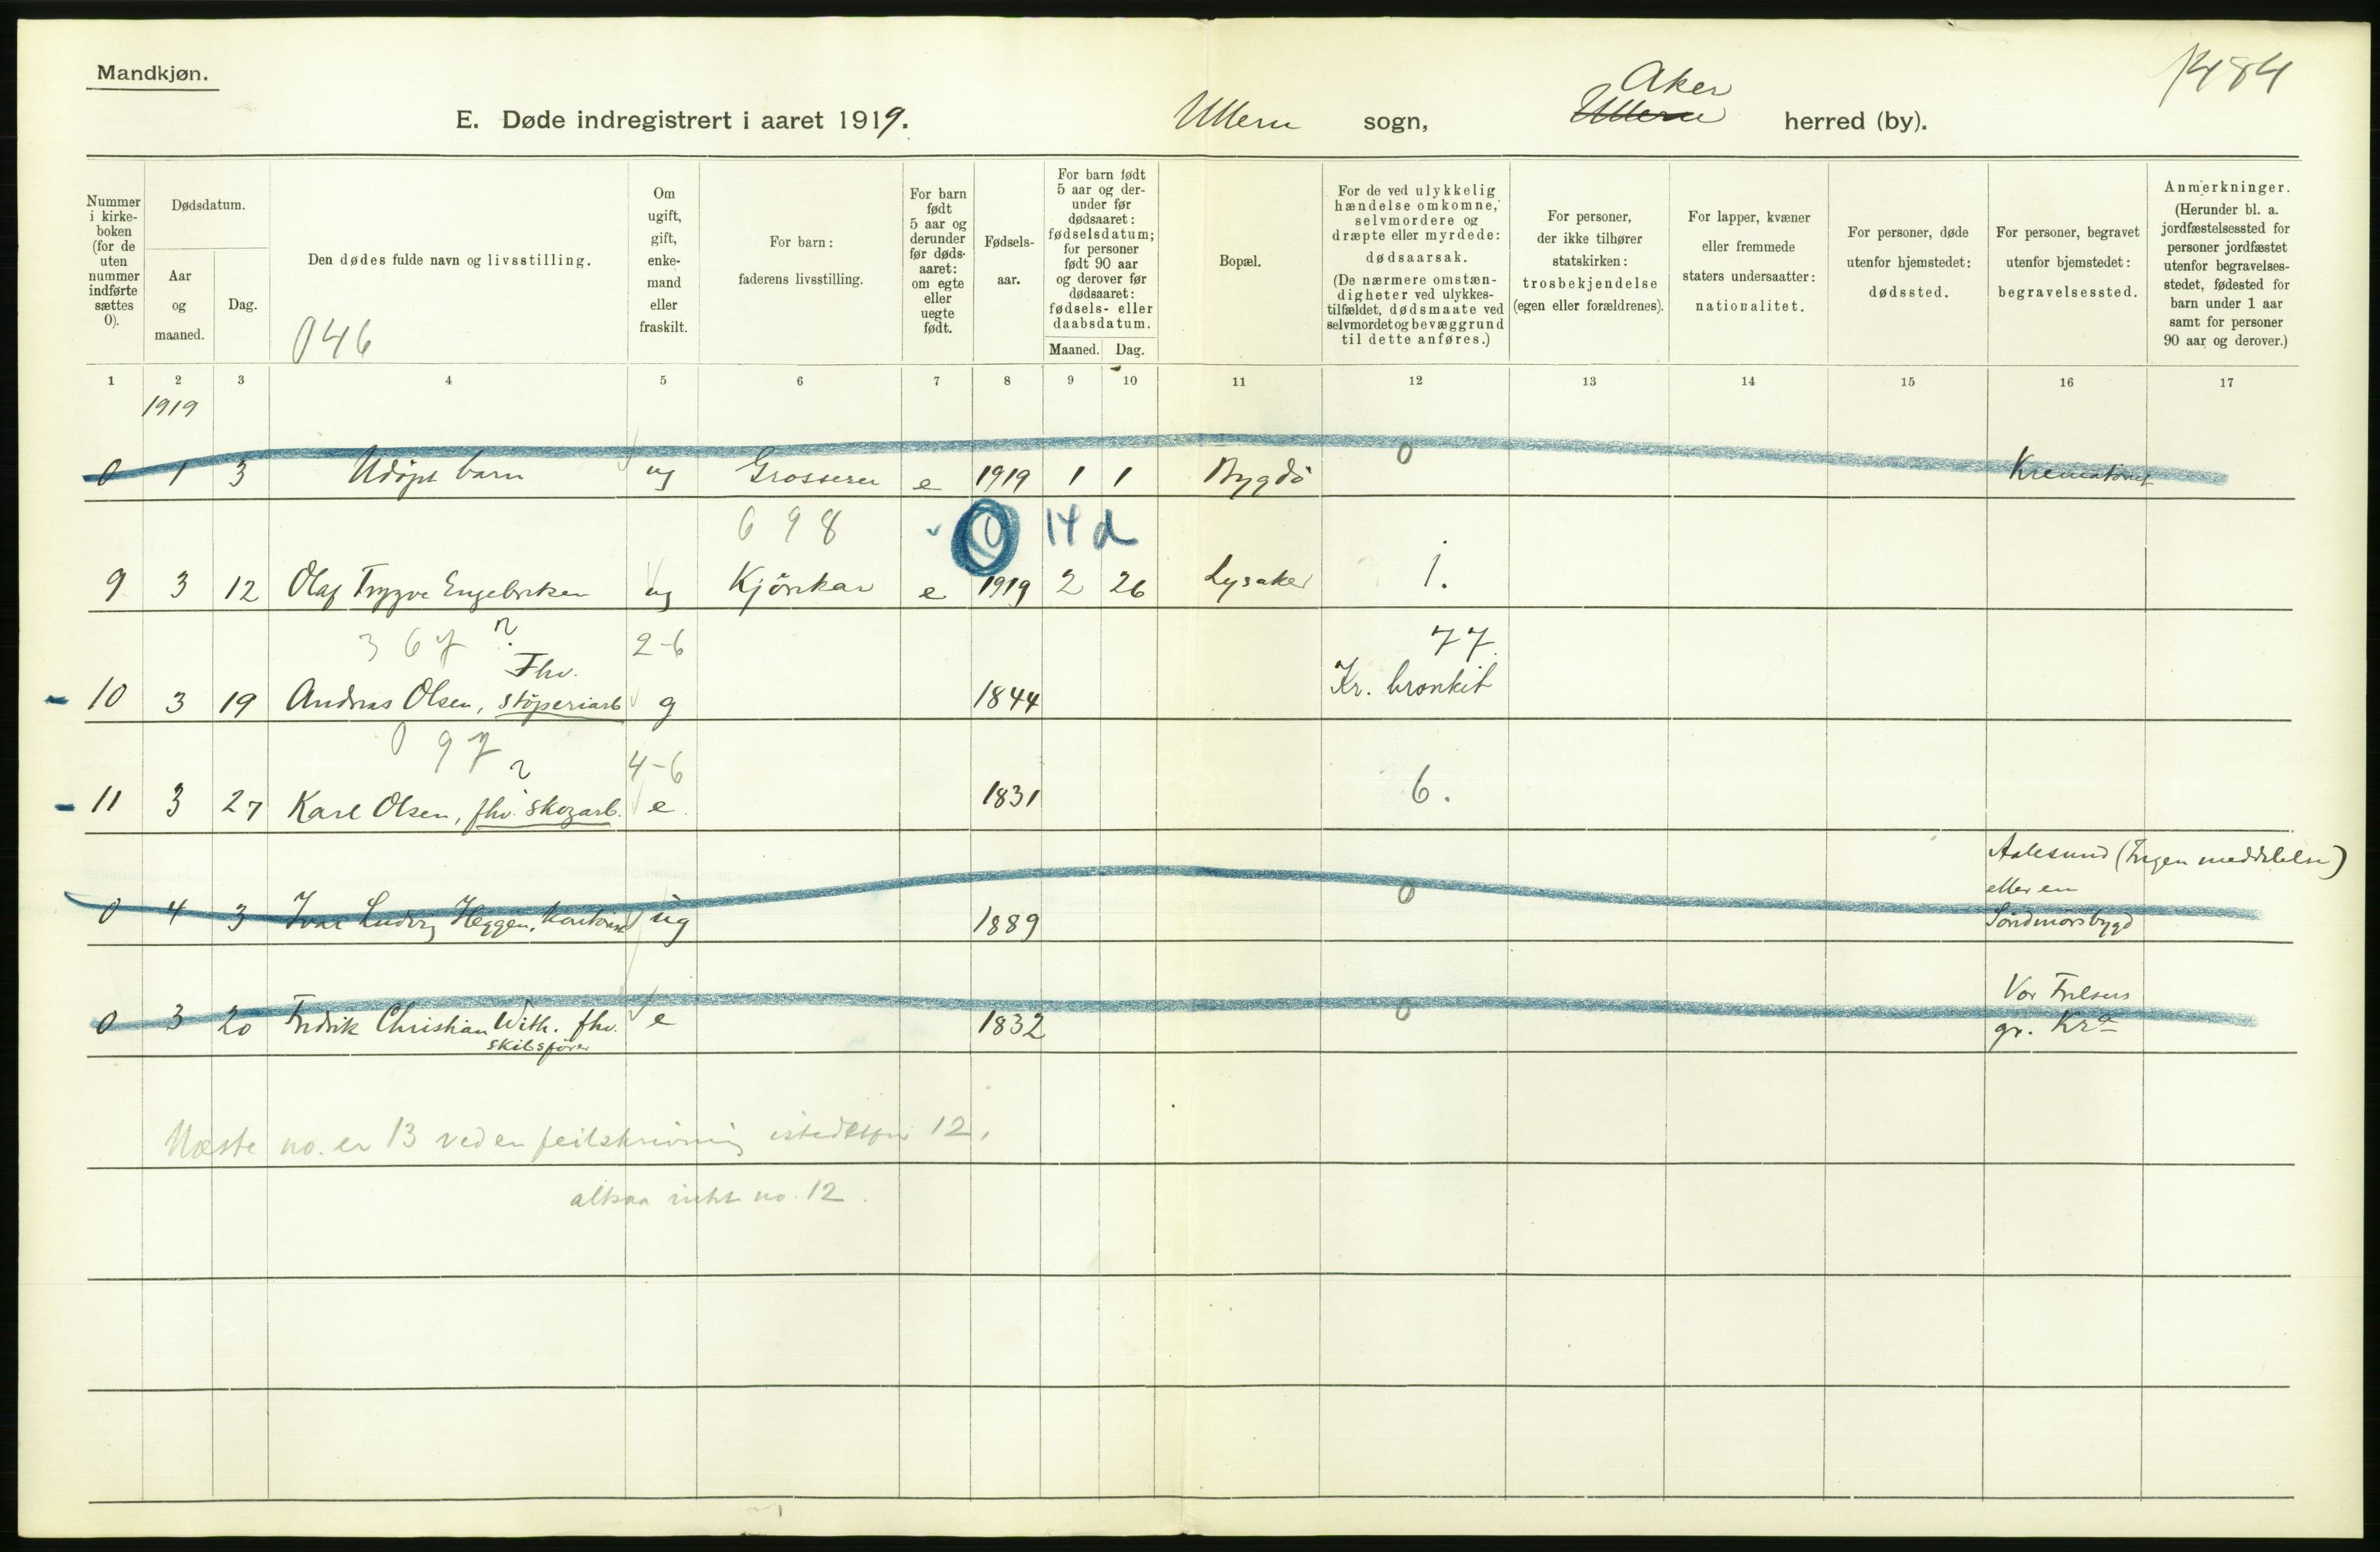 Mandkjøn.
1484
E. Døde indregistrert i aaret 1919.
Ullern sogn,
Aker
Ullern herred (by).
Nummer i kirke-boken (for de uten nummer indførte sættes 0).
Dødsdatum.
Aar og maaned.
Dag.
Den dødes fulde navn og livsstilling.
046
Om ugift, gift, enke-mand eller fraskilt.
For barn: faderens livsstilling.
For barn født 5 aar og derunder før døds-aaret: om egte eller uegte født.
Fødsels-aar.
For barn født 5 aar og der-under før dødsaaret: fødselsdatum; for personer født 90 aar og derover før dødsaaret: fødsels- eller daabsdatum.
Maaned. Dag.
Bopæl.
For de ved ulykkelig hændelse omkomne, selvmordere og dræpte eller myrdede: dødsaarsak. (De nærmere omstæn-digheter ved ulykkes-tilfældet, dødsmaate ved selvmordet og bevæggrund til dette anføres.)
For personer, der ikke tilhører statskirken: trosbekjendelse (egen eller forældrenes).
For lapper, kvæner eller fremmede staters undersaatter: nationalitet.
For personer, døde utenfor hjemstedet: dødssted.
For personer, begravet utenfor hjemstedet: begravelsessted.
Anmerkninger. (Herunder bl. a. jordfæstelsessted for personer jordfæstet utenfor begravelses-stedet, fødested for barn under 1 aar samt for personer 90 aar og derover.)
1 2 3 4 5 6 7 8 9 10 11 12 13 14 15 16 17
1919
0 1 3 Udøpt barn ug Grosserer e 1919 1 1 Bygdö 0 Krematoriet
698 0 14 d
9 3 12 Olaf Trygve Engebretsen ug Kjörskar e 1919 2 26 Lysaker 1.
367 ? 2-6 77.
Fhv. Kr. bronkit
10 3 19 Andreas Olsen, støperiarb g 1844
097 ? 4-6
11 3 27 Karl Olsen, fhv. skogarb. e. 1831 6.
Aalesund (Ingen meddelelse)
eller en
0 4 3 Ivar Ludvig Heggen, kontorist ug 1889 0 Söndmørsbygd
Vor Frelsers
0 3 20 Fredrik Christian With. fhv. e 1832 0 gr. Kra
skibsfører
Næste no. er 13 ved en feilskrivning istedetfor 12.
altsaa intet no. 12.